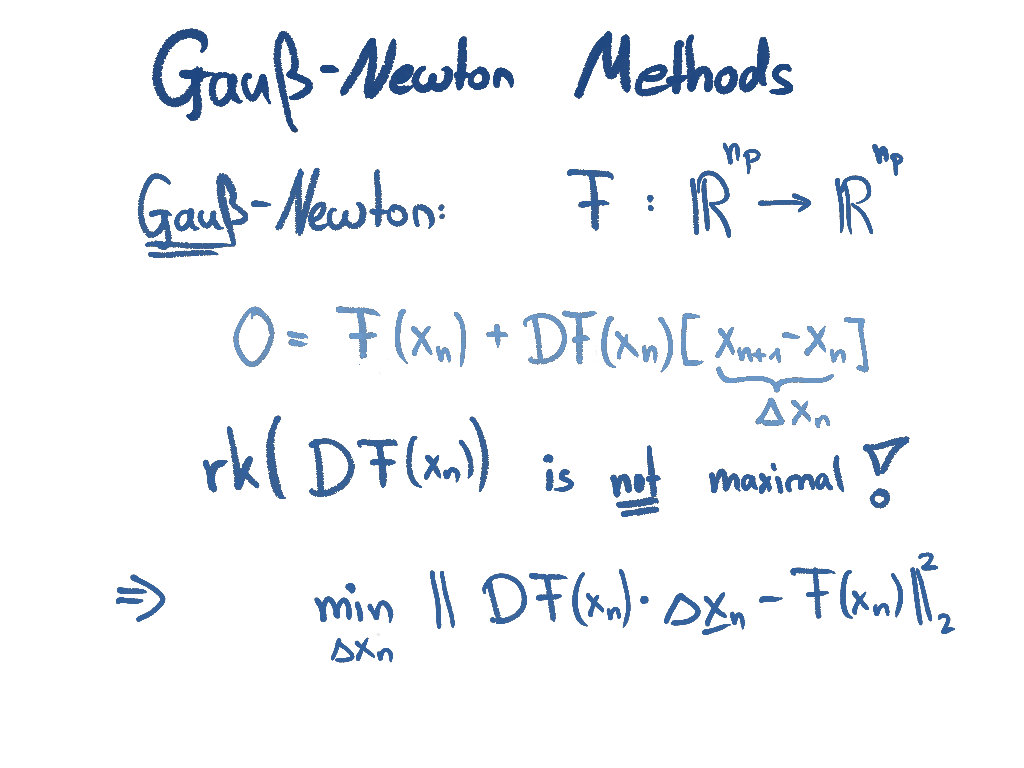 Gauß-Newton Methods
Gauß-Newton: F : ℝ^{n_p} → ℝ^{n_p}
0 = F(x_n) + DF(x_n)[x_{n+1} - x_n]
Δx_n
rk(DF(x_n)) is not maximal!
⇒ min ‖ DF(x_n) · Δx_n - F(x_n) ‖_2^2
Δx_n